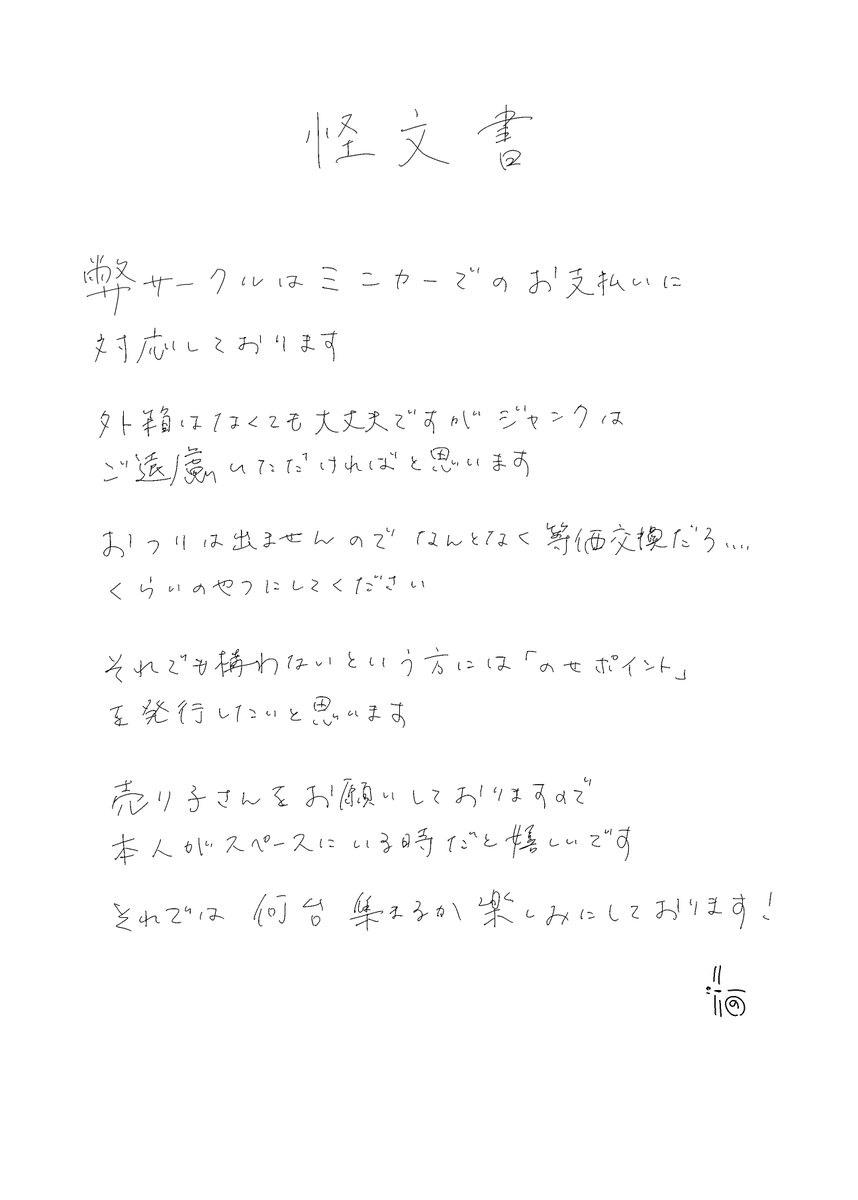 怪文書
弊サークルはミニカーでのお支払いに
対応しております
外箱はなくても大丈夫ですがジャンクは
ご遠慮いただければと思います
おつりは出ませんのでなんとなく等価交換だろ....
くらいのやつにしてください
それでも構わないという方には「のせポイント」
を発行したいと思います
売り子さんをお願いしておりますので
本人がスペースにいる時だと嬉しいです
それでは 何台集まるか楽しみにしております!